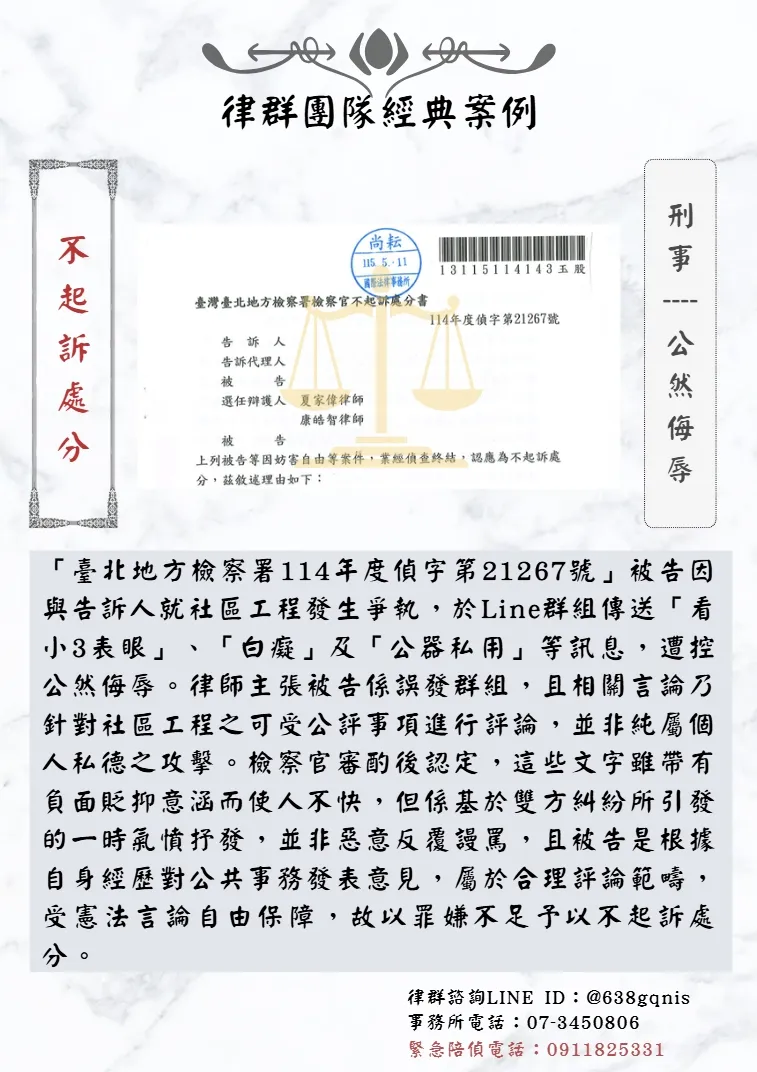 律群團隊經典案例
不起訴處分
刑事----公然侮辱
尚耘
115.5.11
國際法律事務所
13115114143玉股
臺灣臺北地方檢察署檢察官不起訴處分書
114年度偵字第21267號
告訴人
告訴代理人
被告
選任辯護人 夏家偉律師
康皓智律師
被告
上列被告等因妨害自由等案件，業經偵查終結，認應為不起訴處
分，茲敘述理由如下：
「臺北地方檢察署114年度偵字第21267號」被告因
與告訴人就社區工程發生爭執，於Line群組傳送「看
小3表眼」、「白癡」及「公器私用」等訊息，遭控
公然侮辱。律師主張被告係誤發群組，且相關言論乃
針對社區工程之可受公評事項進行評論，並非純屬個
人私德之攻擊。檢察官審酌後認定，這些文字雖帶有
負面貶抑意涵而使人不快，但係基於雙方糾紛所引發
的一時氣憤抒發，並非惡意反覆謾罵，且被告是根據
自身經歷對公共事務發表意見，屬於合理評論範疇，
受憲法言論自由保障，故以罪嫌不足予以不起訴處
分。
律群諮詢LINE ID：@638gqnis
事務所電話：07-3450806
緊急陪偵電話：0911825331